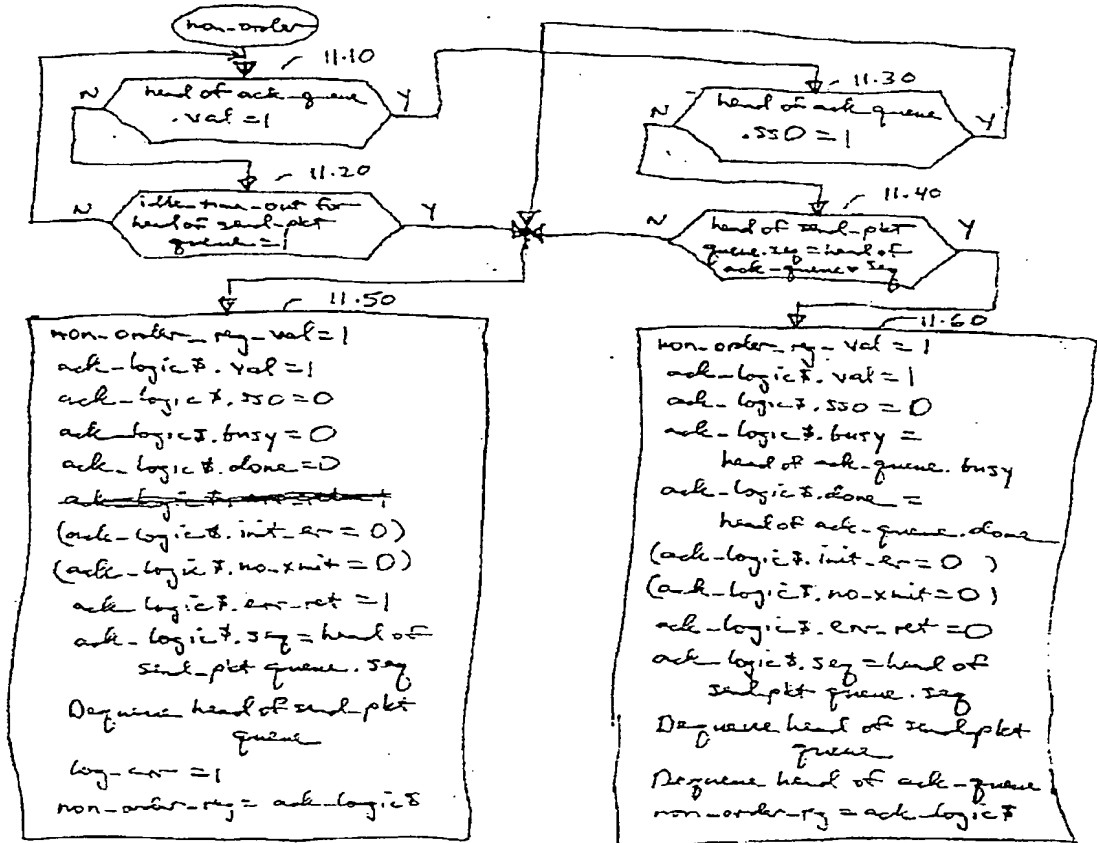 non-order
11.10
head of ack-queue
.val = 1
N
Y
11.20
idle-time-out for
head of send-pkt
queue = 1
N
Y
11.30
head of ack queue
.SSO = 1
N
Y
11.40
head of send-pkt
queue.seq = head of
ack-queue.seq
N
Y
11.50
non-order-reg-val = 1
ack-logic$.val = 1
ack-logic$.sso = 0
ack-logic$.busy = 0
ack-logic$.done = 0
(ack-logic$.init-err = 0)
(ack-logic$.no-xmit = 0)
ack logic$.err-ret = 1
ack-logic$.seq = head of
send-pkt queue.seq
Dequeue head of send-pkt
queue
log-err = 1
non-order-reg = ack-logic$
11.60
non-order-reg-val = 1
ack-logic$.val = 1
ack-logic$.sso = 0
ack-logic$.busy =
head of ack-queue.busy
ack-logic$.done =
head of ack-queue.done
(ack-logic$.init-err = 0)
(ack-logic$.no-xmit = 0)
ack-logic$.err-ret = 0
ack-logic$.seq = head of
send-pkt queue.seq
Dequeue head of send-pkt
queue
Dequeue head of ack-queue
non-order-reg = ack-logic$